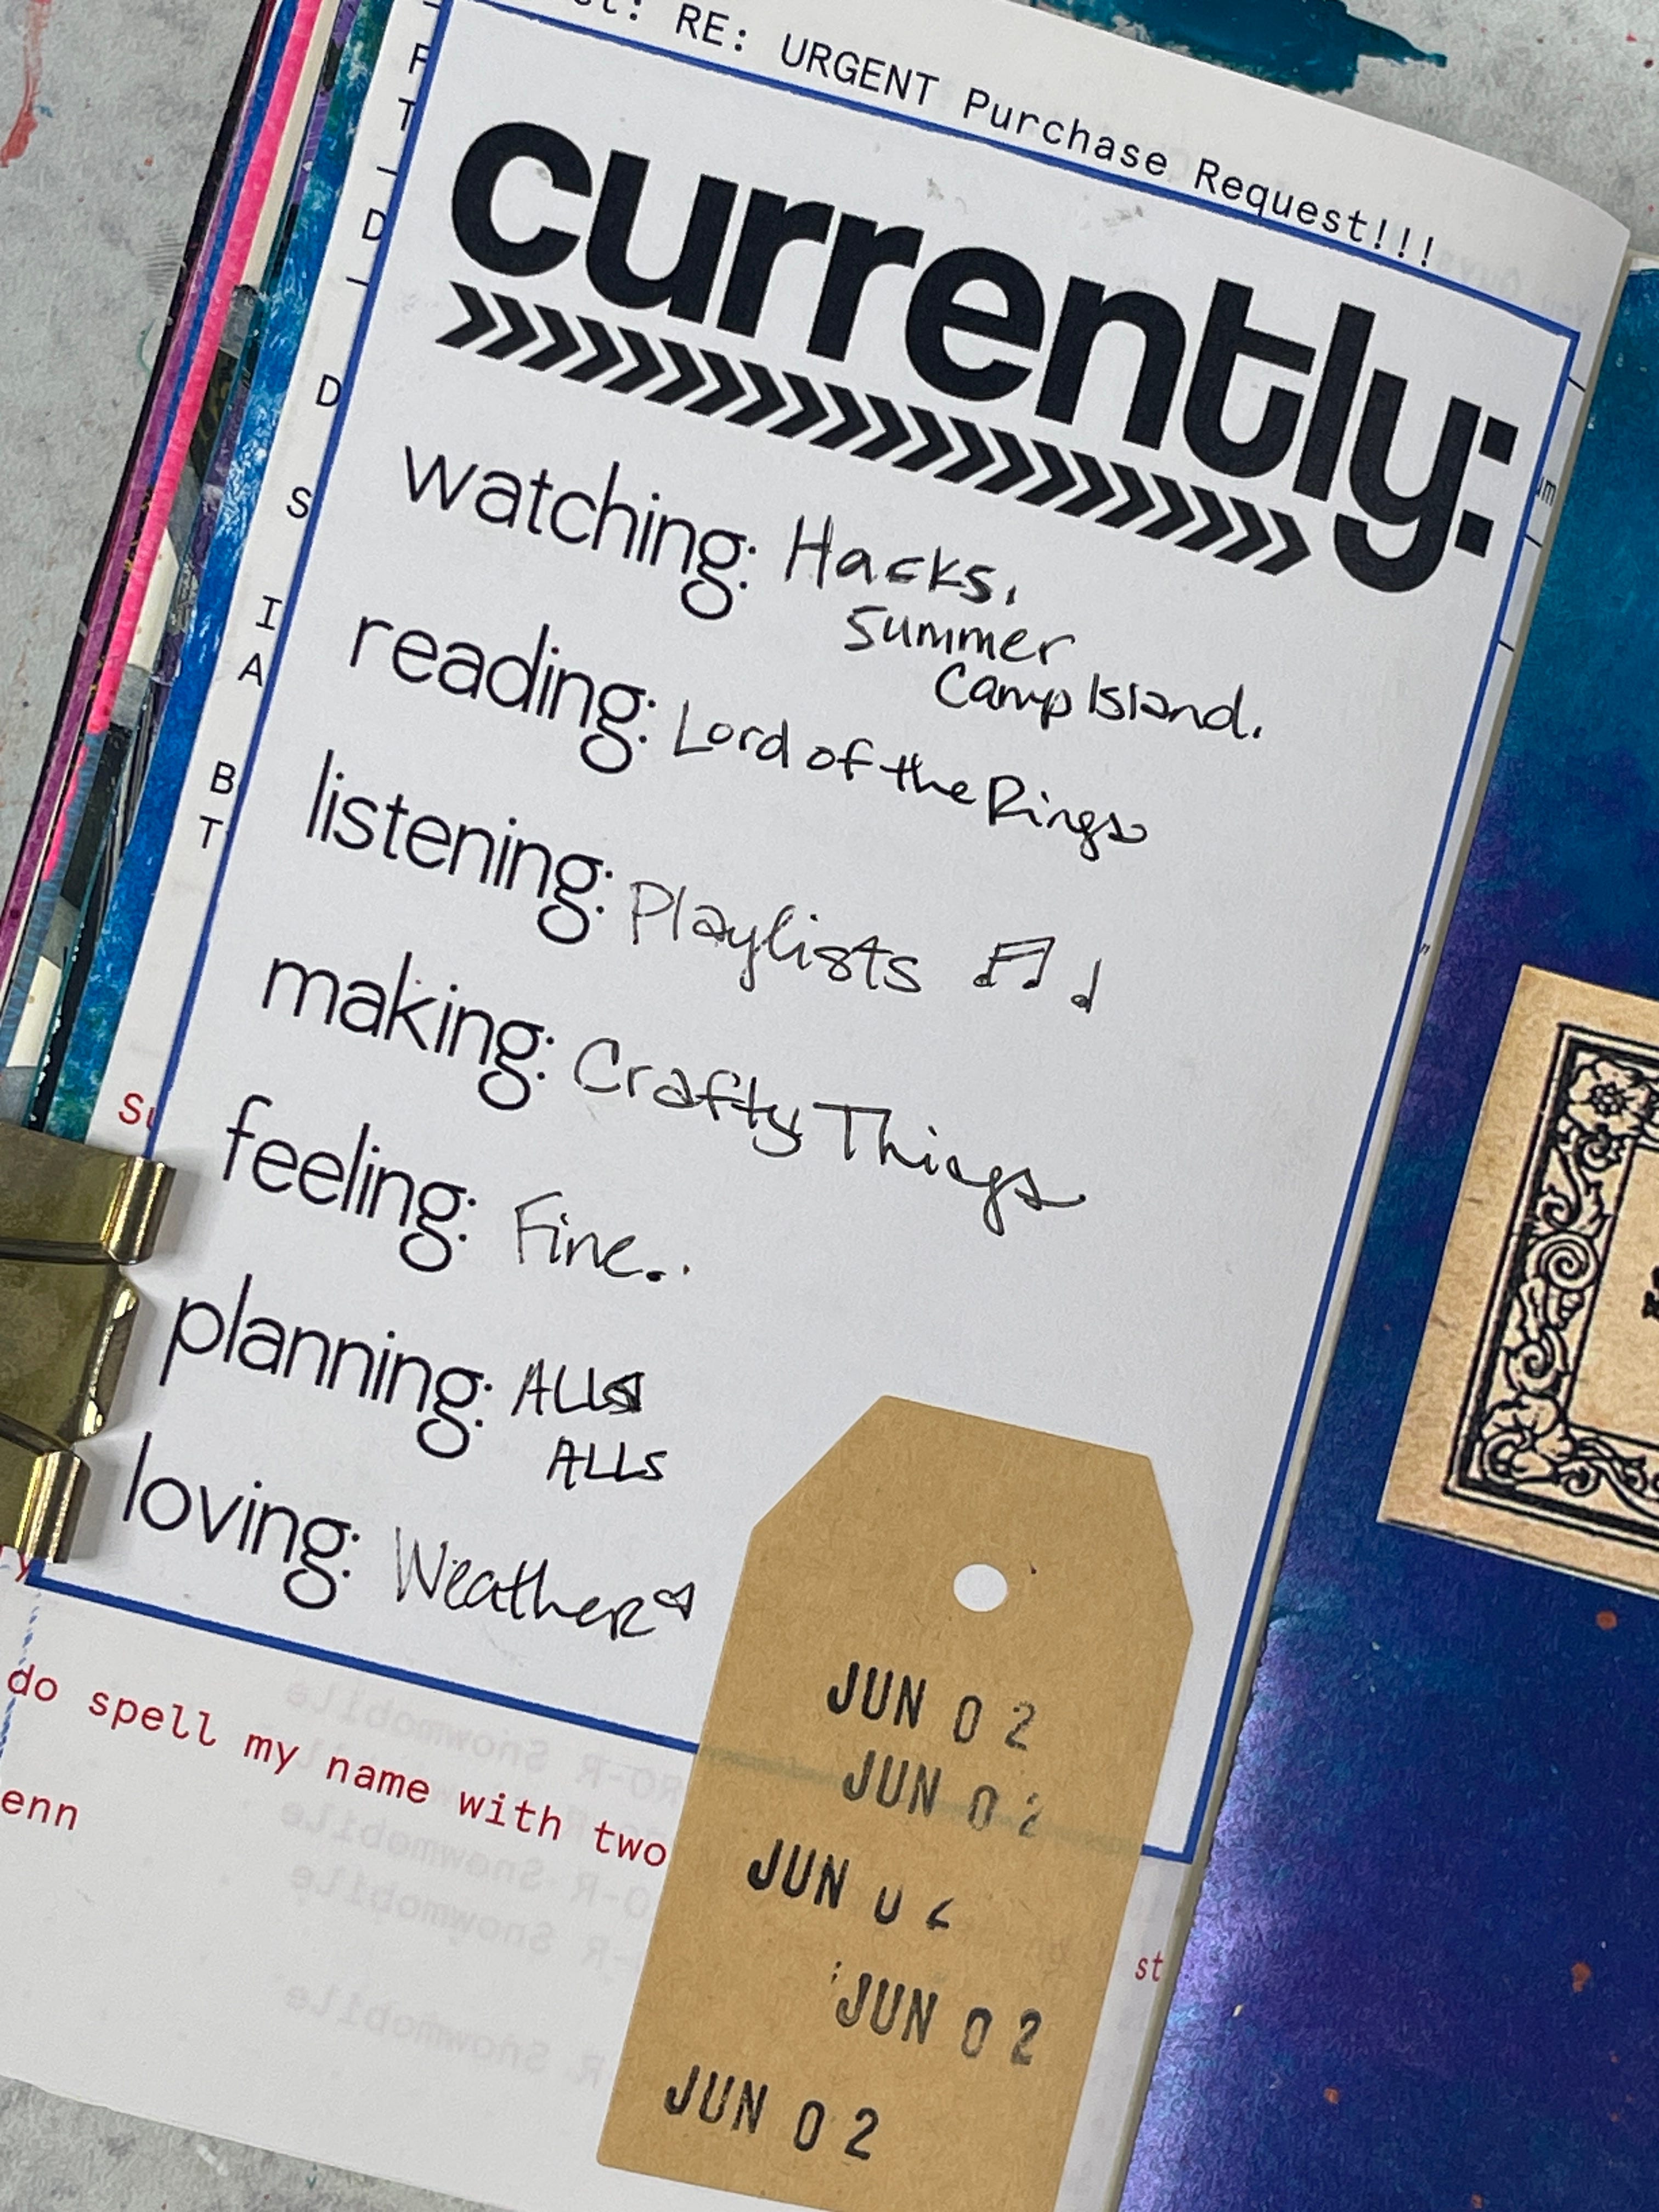 ct: RE: URGENT Purchase Request!!!
currently:
watching: Hacks,
Summer
Camp Island.
reading: Lord of the Rings
listening: Playlists
making: Crafty Things
feeling: Fine..
planning: ALLS
ALLS
loving: Weather
do spell my name with two
enn
st
JUN 02
JUN 02
JUN 02
JUN 02
JUN 02